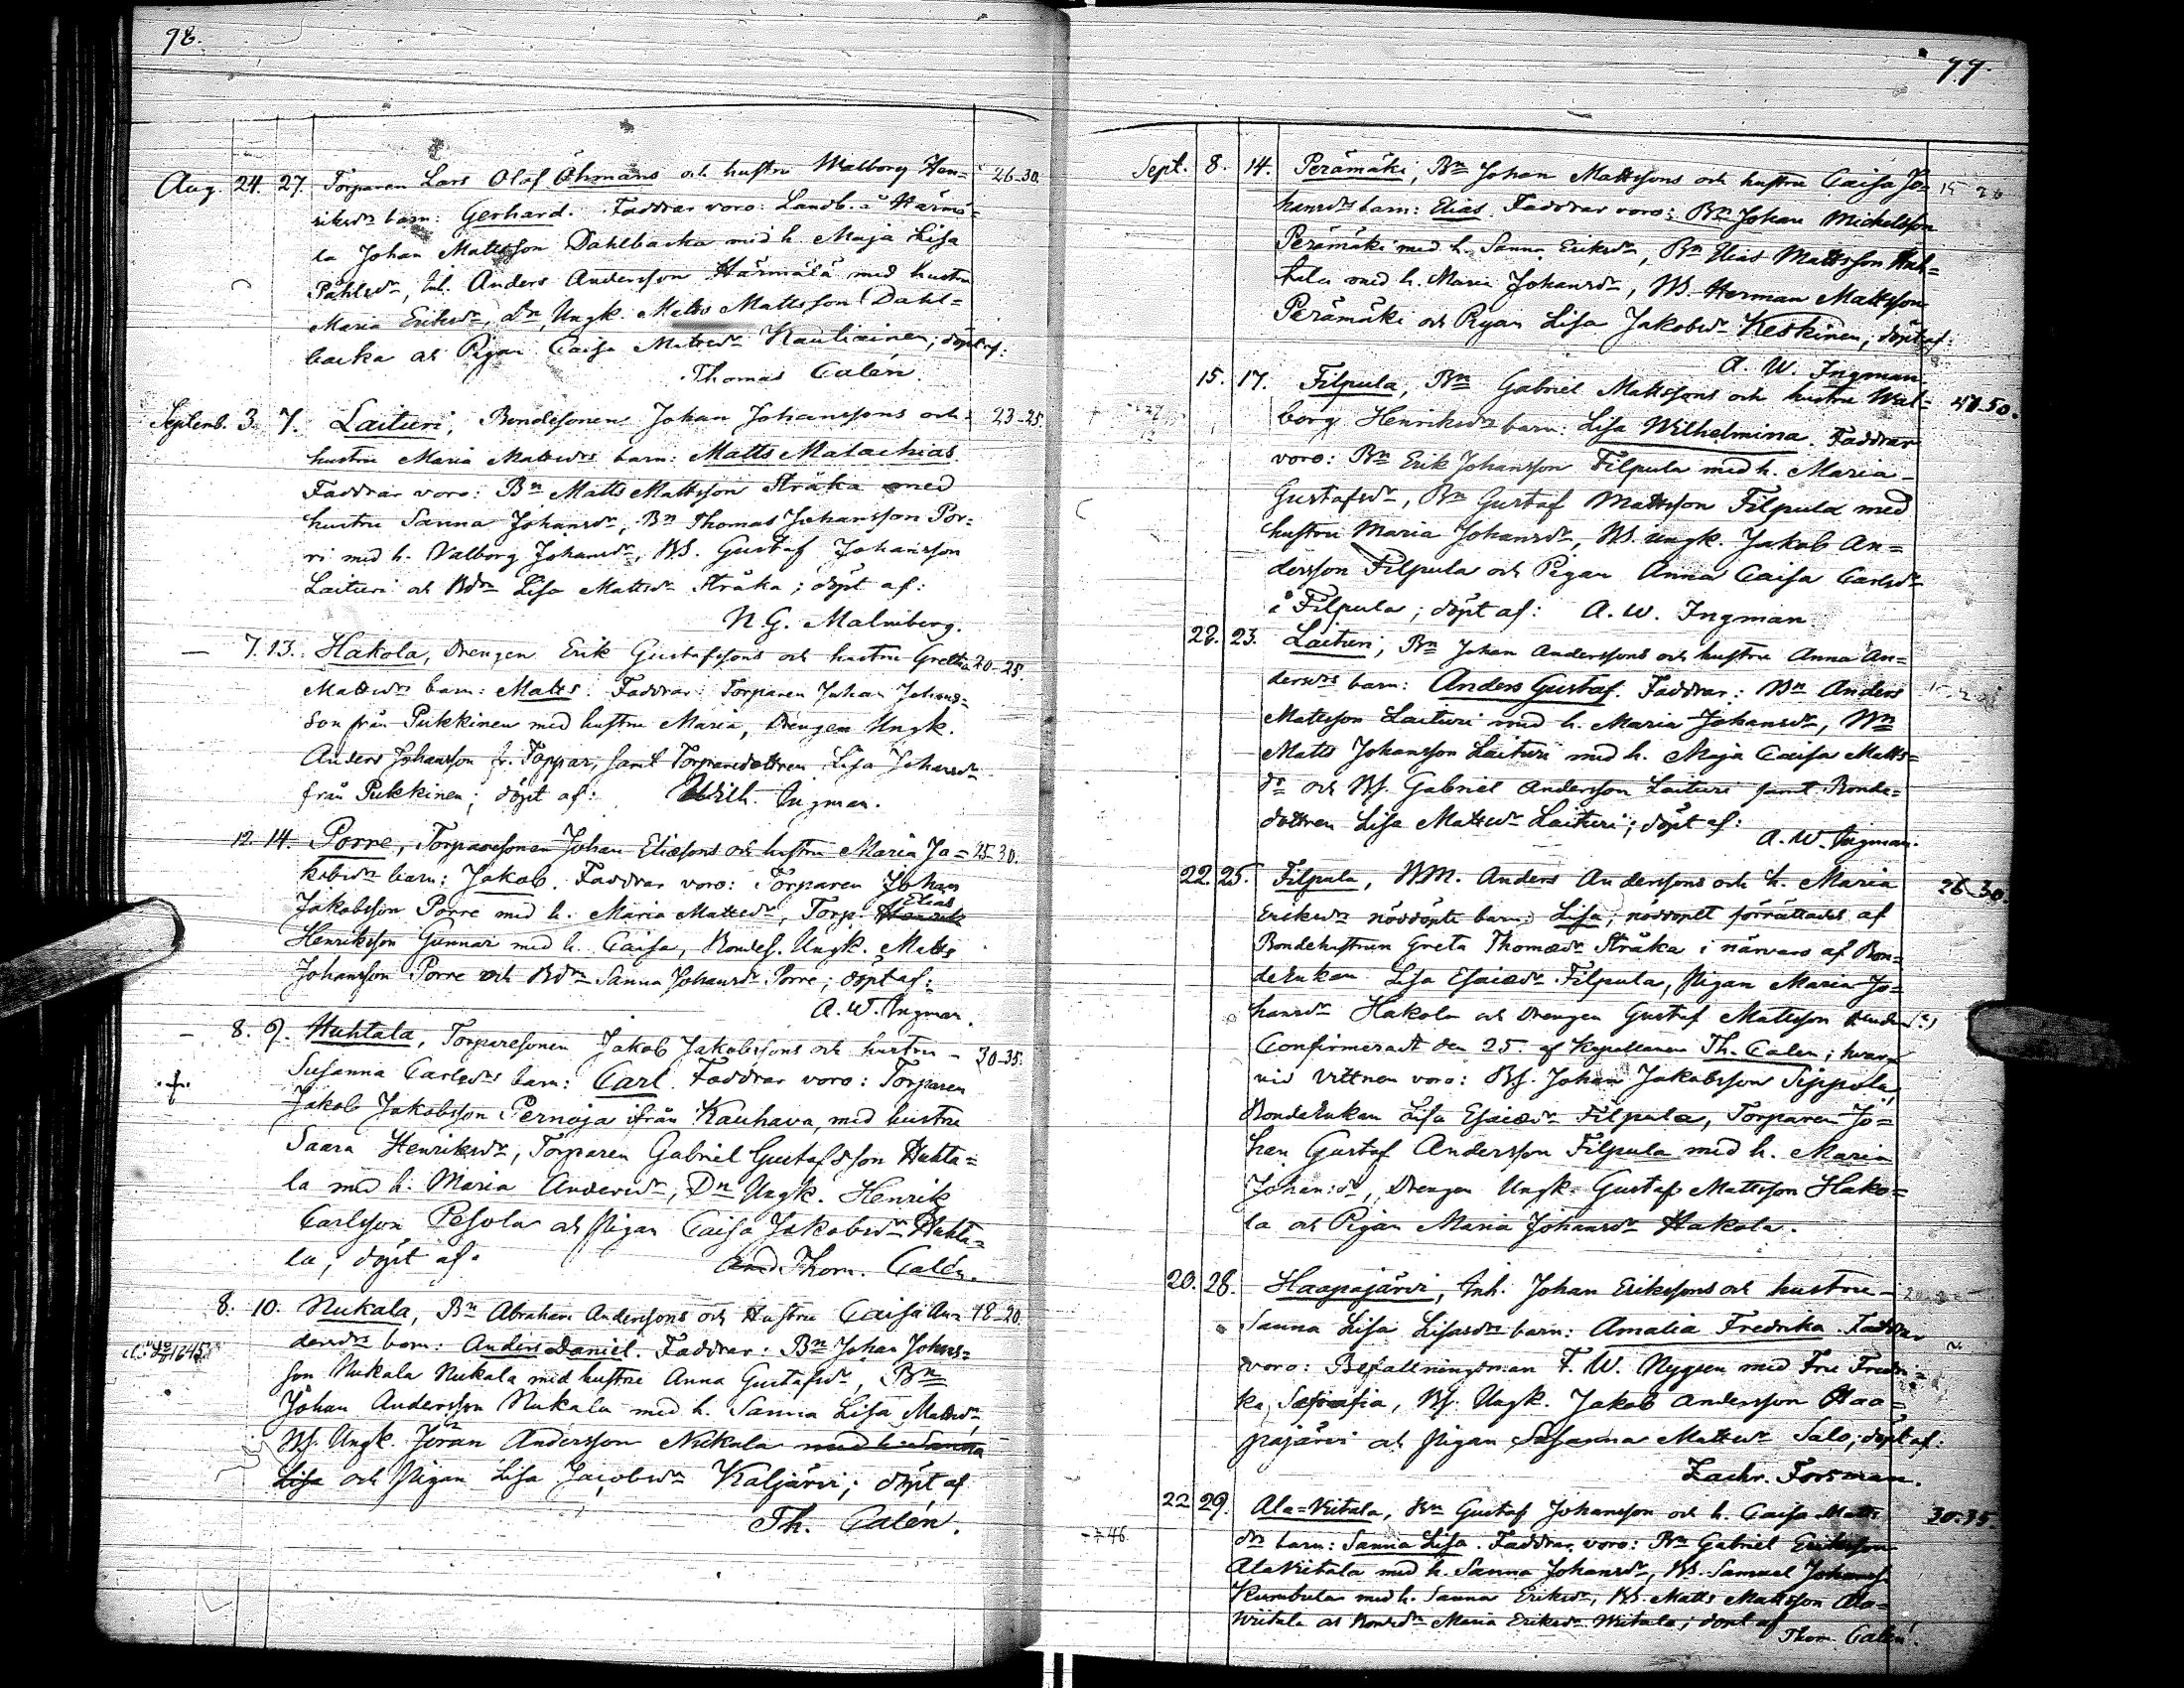 98.
Aug. 24. 27. Torparen Lars Olof Öhmans och hustru Walborg Hen= 26-30.
riksdrs barn: Gerhard. Faddrar voro: Landb. å Härmä=
la Johan Mattsson Dahlbacka med h. Maja Lisa
Påhlsdr, Inh. Anders Andersson Härmälä med hustru
Maria Eriksdr, Dn, Ungk. Matts Mattsson Dahl=
backa och Pigan Caisa Mattsdr Kauliainen; döpt af:
Thomas Calén.
Septemb. 3. 7. Laituri, Bondesonen Johan Johanssons och 23-25.
hustru Maria Mattsdrs barn: Matts Malachias.
Faddrar voro: Bn Matts Mattsson Stråka med
hustru Sanna Johansdr, Bn Thomas Johansson Por=
ri med h. Valborg Johansdr, BS. Gustaf Johansson
Laituri och Bdn Lisa Mattsdr Stråka; döpt af:
N. G. Malmberg.
— 7. 13. Hakola, Drengen Erik Gustafssons och hustru Gretha 20-25.
Mattsdrs barn: Matts. Faddrar: Torparen Johan Johans=
son från Pukkinen med hustru Maria, Drengen Ungk.
Anders Johansson fr. Toppar, samt Torparedottren Lisa Johansdr
från Pukkinen; döpt af: Wilh. Ingman.
12. 14. Porre, Torparesonen Johan Eliæsons och hustru Maria Ja= 25-30.
kobsdrs barn: Jakob. Faddrar voro: Torparen Johan
Jakobsson Porre med h. Maria Mattsdr, Torp. Elias
Henriksson Gunnar med h. Caisa, Bondes. Ungk. Matts
Johansson Porre och Bdn Sanna Johansdr Porre; döpt af:
A. W. Ingman.
— 8. 9. Huhtala, Torparesonen Jakob Jakobssons och hustru 30-35.
Susanna Carlsdrs barn: Carl. Faddrar voro: Torparen
Jakob Jakobsson Pernaja ifrån Kauhava, med hustru
Saara Henriksdr, Torparen Gabriel Gustafsson Huhta=
la med h. Maria Andersdr, Dn Ungk. Henrik
Carlsson Pesola och Pigan Caisa Jakobsdr Huhta=
la, döpt af: Thom. Calén.
8. 10. Nukala, Bn Abraham Anderssons och Hustru Caisa An= 18-20.
dersdrs barn: Anders Daniel. Faddrar: Bn Johan Johans=
son Nukala Nukala med hustru Anna Gustafsdr, Bn
Johan Andersson Nukala med h. Sanna Lisa Mattsdr,
BS. Ungk. Jöran Andersson Nukala med h. Sanna
Lisa och Pigan Lisa Jacobsdr Kaljärvi; döpt af
Th. Calén.
99.
Sept. 8. 14. Perämäki, Bn Johan Mattssons och hustru Caisa Jo= 15 20
hansdrs barn: Elias. Faddrar voro: Bn Johan Michelsson
Perämäki med h. Sanna Eriksdr, Bn Elias Mattsson Huh=
tala med h. Maria Johansdr, BS. Herman Mattsson
Perämäki och Pigan Lisa Jakobsdr Keskinen; döpt af:
A. W. Ingman.
15. 17. Filpula, Bn Gabriel Mattssons och hustru Wal= 50.
borg Henriksdrs barn: Lisa Wilhelmina. Faddrar
voro: Bn Erik Johansson Filpula med h. Maria
Gustafsdr, Bn Gustaf Mattsson Filpula med
hustru Maria Johansdr, BS. Ungk. Jakob An=
dersson Filpula och Pigan Anna Caisa Carlsdr
i Filpula; döpt af: A. W. Ingman
22. 23. Laituri, Bn Johan Anderssons och hustru Anna An=
dersdrs barn: Anders Gustaf. Faddrar: Bn Anders
Mattsson Laituri med h. Maria Johansdr, Bn
Matts Johansson Laituri med h. Maja Caisa Matts=
dr och BS. Gabriel Andersson Laituri samt Bonde=
dottren Lisa Mattsdr Laituri; döpt af:
A. W. Ingman.
22. 25. Filpula, Anders Anderssons och h. Maria 26-30.
Eriksdrs nöddöpte barn: Lisa; nöddopet förrättades af
Bondehustrun Greta Thomasdr Stråka i närvaro af Bon=
deEnkan Lisa Esaiædr Filpula, Pigan Maria Jo=
hansdr Hakola och Drengen Gustaf Mattsson
Confirmeradt den 25. af Kapellanen Th. Calen; hvar
vid vittnen voro: BS. Johan Jakobsson Sippola,
BondeEnkan Lisa Esaiædr Filpula, Torparen Jo=
han Gustaf Andersson Filpula med h. Maria
Johan:dr, Drengen Ungk. Gustaf Mattsson Hako=
la och Pigan Maria Johansdr Hakola.
20. 28. Haapajärvi, Inh. Johan Erikssons och hustru
Sanna Lisa Lisasdrs barn: Amalia Fredrika. Faddrar
voro: Befallningsman F. W. Nygren med Fru Fredri=
ka Sofia, BS. Ungk. Jakob Andersson Haa=
pajärvi och Pigan Susanna Mattsdr Salo; döpt af:
Zachr. Forsman.
22 29. Ala=Viitala, Bn Gustaf Johansson och h. Caisa Matts 30-35.
drs barn: Sanna Lisa. Faddrar voro: Bn Gabriel Eriksson
AlaViitala med h. Sanna Johansdr, BS. Samuel Johans
Kumbula med h. Sanna Eriksdr, BS. Matts Mattsson Ala=
Viitala och Maria Eriksdr Wiitala; döpt af
Thom. Calén.